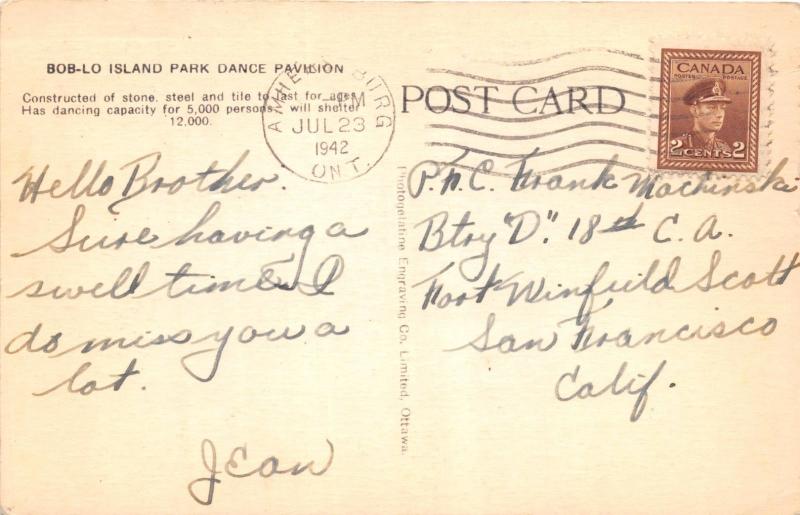 BOB-LO ISLAND PARK DANCE PAVILION
Constructed of stone, steel and tile to last for ages.
Has dancing capacity for 5,000 persons, will shelter
12,000.
AMHERSTBURG
PM
JUL 23
1942
ONT.
POST CARD
CANADA
POSTES POSTAGE
2 CENTS 2
Hello Brother.
Sure having a
swell time. I
do miss you a
lot.
Jean
Photogelatine Engraving Co. Limited, Ottawa.
P.F.C. Frank Machinski
Btry "D". 18th C.A.
Fort Winfield Scott
San Francisco
Calif.